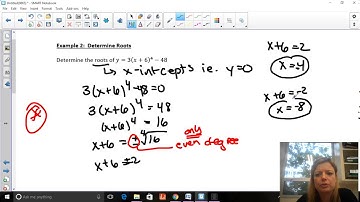 Example 2: Determine Roots
Determine the roots of y = 3(x + 6)⁴ − 48
↳ x-intercepts ie. y=0
3(x+6)⁴-48=0
3(x+6)⁴ = 48
(x+6)⁴ = 16
x+6 = ±⁴√16
only
even degree
x+6 = ±2
x+6 = 2
x = -4
x+6 = -2
x = -8